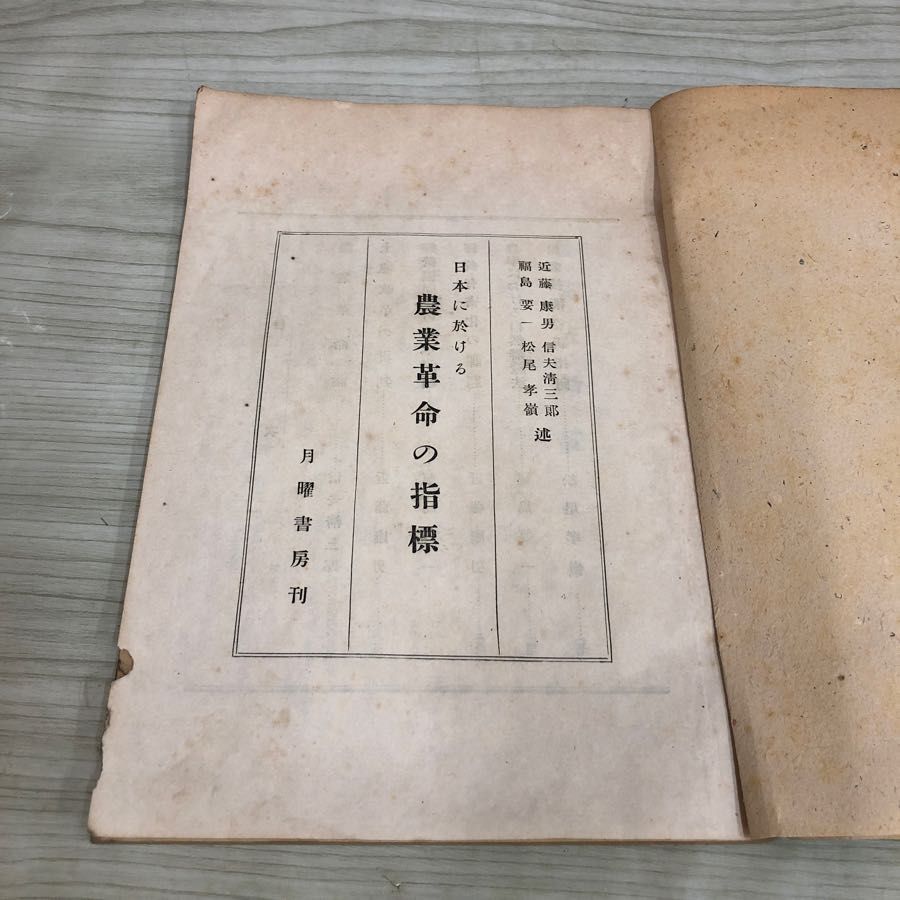 近藤康男 信夫清三郎
福島要一 松尾孝嶺 述
日本に於ける
農業革命の指標
月曜書房刊